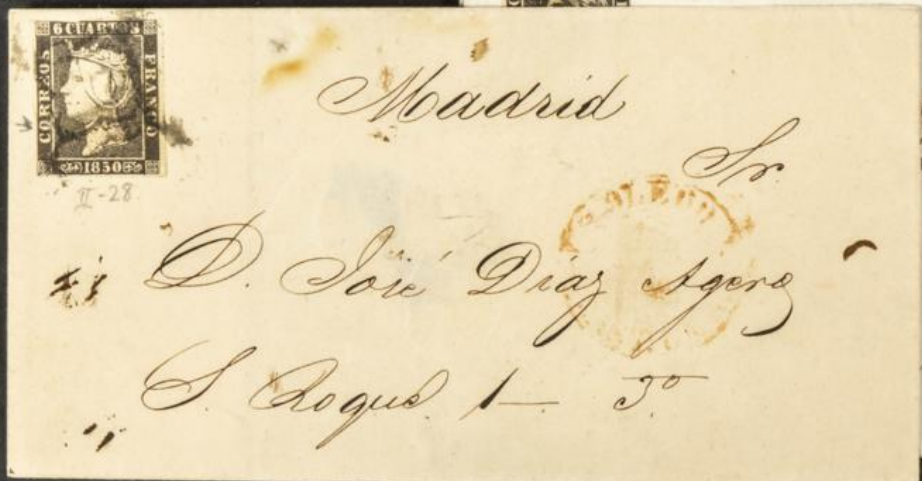 6 CUARTOS
CORREOS
FRANCO
1850
II-28
Madrid
Sr.
D. José Díaz Agero
S. Roque. 1 — 3º
TOLEDO